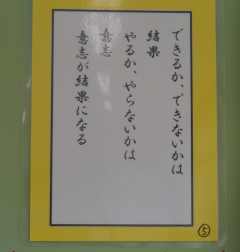 できるか、できないかは
結果
やるか、やらないかは
意志
意志が結果になる
⑤